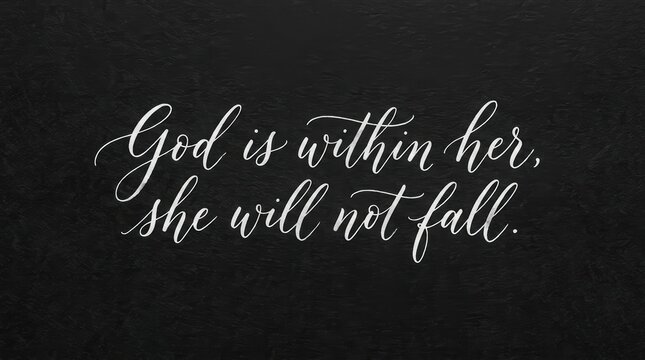 God is within her,
she will not fall.